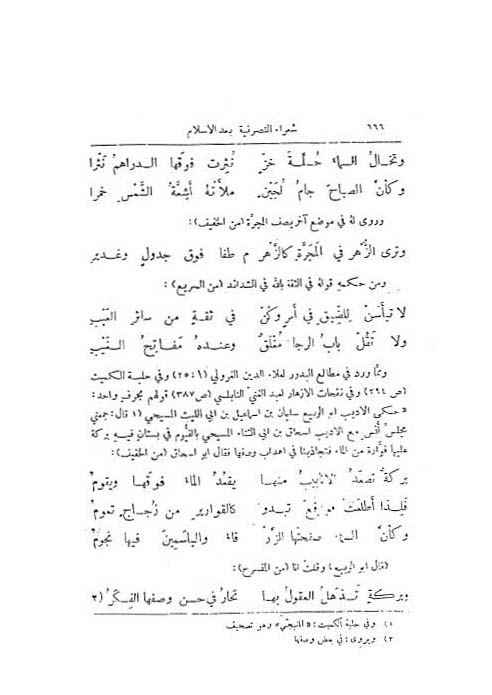 ٢٢٢ شعراء النصرانية بعد الاسلام
وتخالُ السماء حُلّةَ خزٍّ نُثِرت فوقها الدراهمُ نَثرا
وكأنَّ الصباحَ جامُ لُجَينٍ ملأَتْهُ أَشِعَّةُ الشَّمْسِ خمرا
وروى لهُ في موضع آخر يصف المجرَّة (من الخفيف):
وترى الزُّهرَ في المَجَرَّةِ كالزَّهر م طفا فوق جدولٍ وغديرِ
ومن حكمهِ قولهُ في الثقة بالله في الشدائد (من السريع):
لا تيأَسَنْ للضيقِ في أمرٍ وكُنْ في ثقةٍ من ساترِ العَيْبِ
ولا تَقُلْ بابُ الرجا مُغْلَقٌ وعندهُ مفاتيحُ الغَيْبِ
وممَّا ورد في مطالع البدور لعلاء الدين الغزولي (١: ٢٥) وفي حلبة الكميت
(ص ٢٦٤) وفي نفحات الازهار لعبد الغني النابلسي (ص ٣٨٧) قولهم بحرفٍ واحد:
« حكى الاديب ابو الربيع سليمان بن اسماعيل بن ابي الليث المسيحي (١ قال: جمعني
مجلسُ أُنسٍ مع الاديب اسحاق بن ابي الثناء المسيحي بالفيُّوم في بستان فيهِ بركة
عليها فوّارة من الماء فتجاذبنا في اهداب وصفها فقال ابو اسحاق (من الخفيف):
بركةٌ تصعدُ الانابيبُ منها يقعُدُ الماءُ فوقها ويقومُ
فلذا أطلعتْ فواقعَ تبدو كالقوارير من زُجاجٍ تعومُ
وكأنَّ السماءَ صفحتُها الزَّرْ قاءُ والياسَمينُ فيها نجومُ
(قال ابو الربيع) وقلتُ انا (من المنسرح):
وبركةٍ تَذهَلُ العقولُ بها تحارُ في حسن وصفها الفِكَرُ (٢
١) وفي حلبة الكميت: «المنبجيّ» وهو تصحيف
٢) ويروى: في بعض وصفها